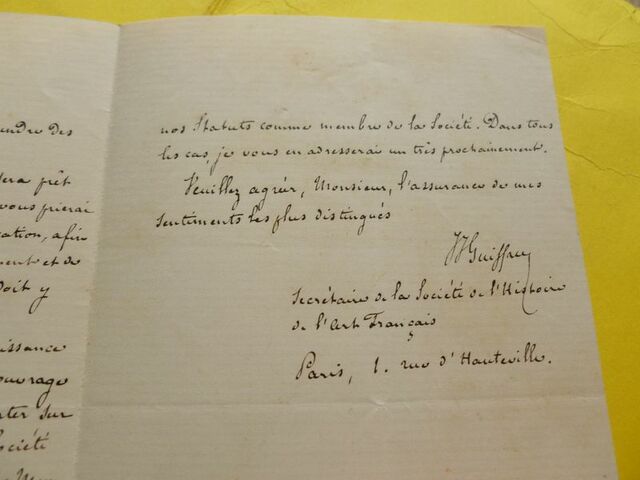 endre des
sera prêt
vous prierai
cation, afin
ment et de
doit y
issance
ouvrage
ter sur
ociété
nos Statuts comme membre de la Société. Dans tous
les cas, je vous en adresserai un très prochainement.
Veuillez agréer, Monsieur, l'assurance de mes
sentiments les plus distingués
JJ Guiffrey
Secrétaire de la Société de l'Histoire
de l'Art Français
Paris, 1. rue d'Hauteville.